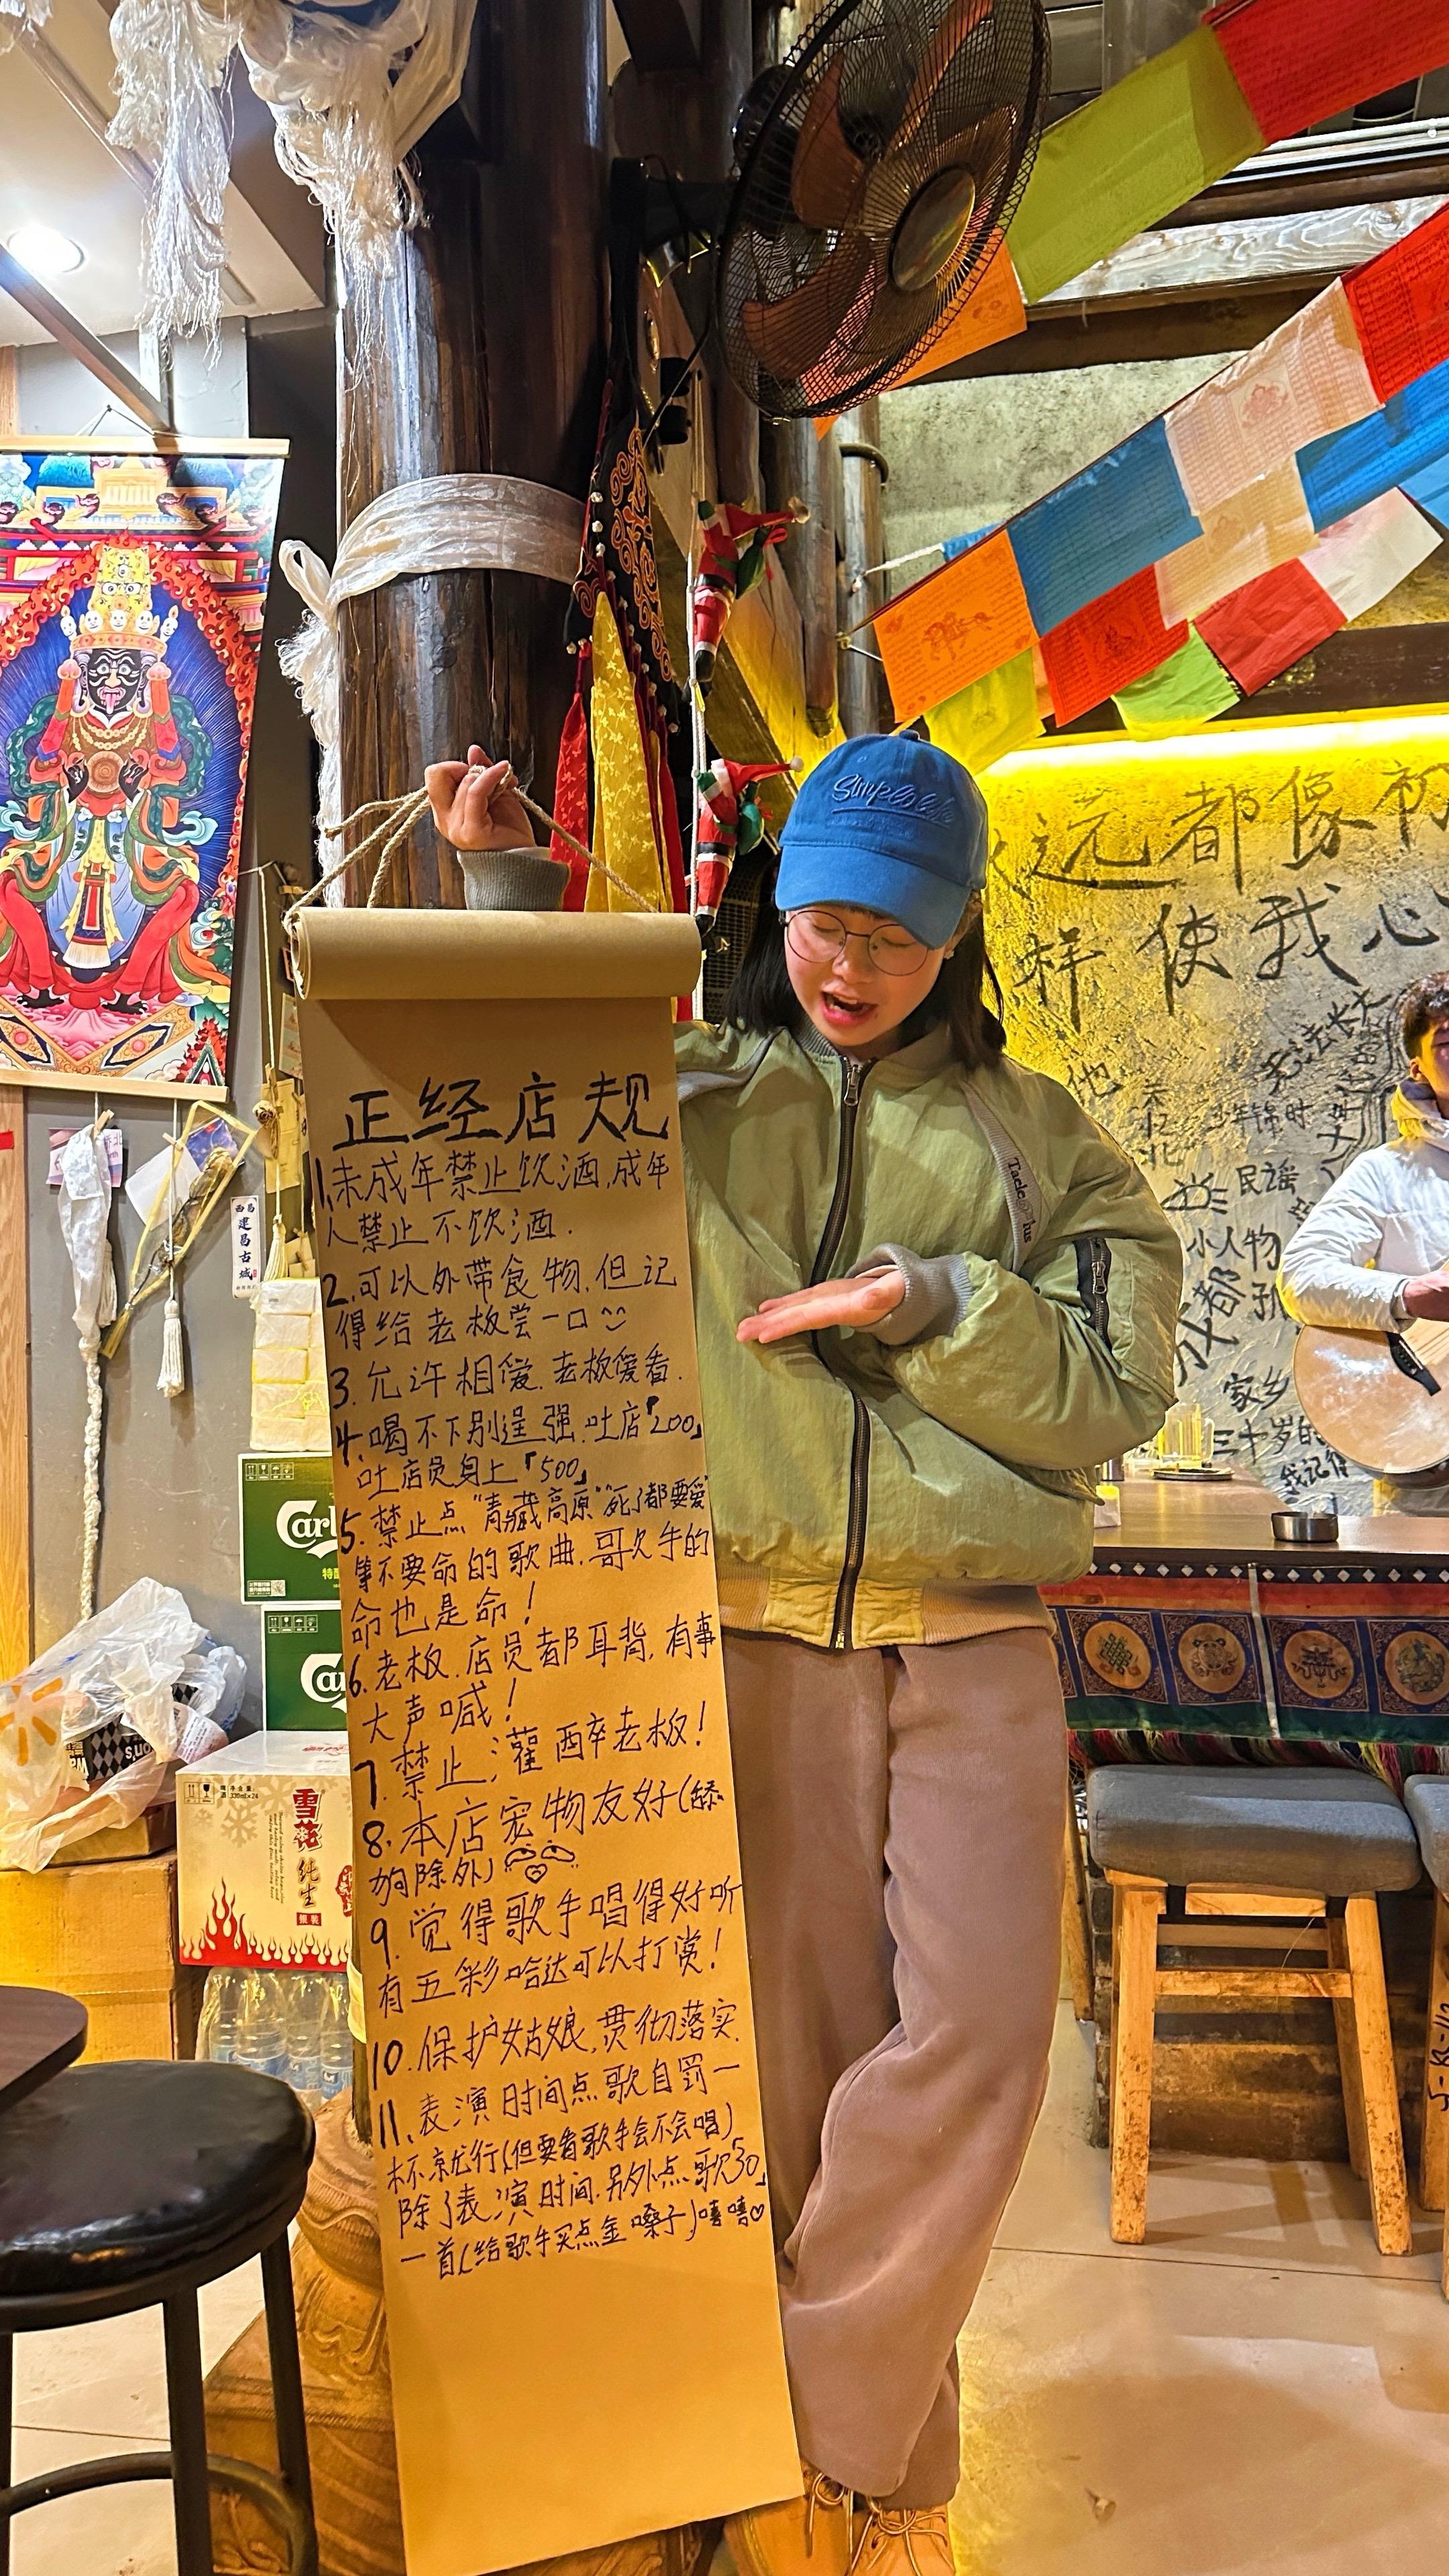 正经店规
1.未成年禁止饮酒,成年
人禁止不饮酒.
2.可以外带食物,但记
得给老板尝一口
3.允许相爱.老板爱看.
4.喝不下别逞强.吐店「200」
吐店员身上「500」
5.禁止点“青藏高原”“死了都要爱”
等不要命的歌曲.歌手的
命也是命!
6.老板.店员都耳背,有事
大声喊!
7.禁止灌醉老板!
8.本店宠物友好(舔
狗除外)
9.觉得歌手唱得好听
有五彩哈达可以打赏!
10.保护姑娘,贯彻落实.
11.表演时间点歌自罚一
杯就行(但要看歌手会不会唱)
除了表演时间.另外点歌50
一首(给歌手买点金嗓子)嘻嘻♡
Simple life
远都像初
样使我心
他
无法长大
少年锦时
民谣
小人物
都
家乡
三十岁的
我记得
西昌
建昌古城
Carl
特酿
Carl
雪花
纯生
330ml×24